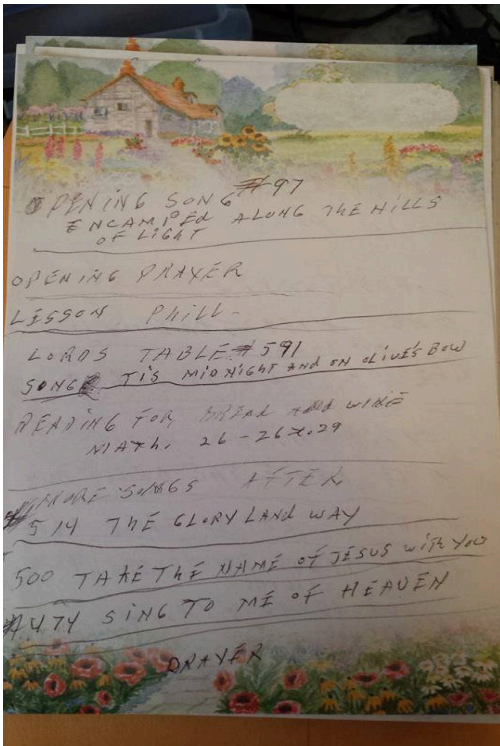 OPENING SONG #97
ENCAMPED ALONG THE HILLS
OF LIGHT
OPENING PRAYER
LESSON PHILL.
LORDS TABLE #591
SONG TIS MIDNIGHT AND ON OLIVE'S BOW
READING FOR BREAD AND WINE
MATH. 26-26
MORE SONGS AFTER
# 514 THE GLORY LAND WAY
500 TAKE THE NAME OF JESUS WITH YOU
#474 SING TO ME OF HEAVEN
PRAYER